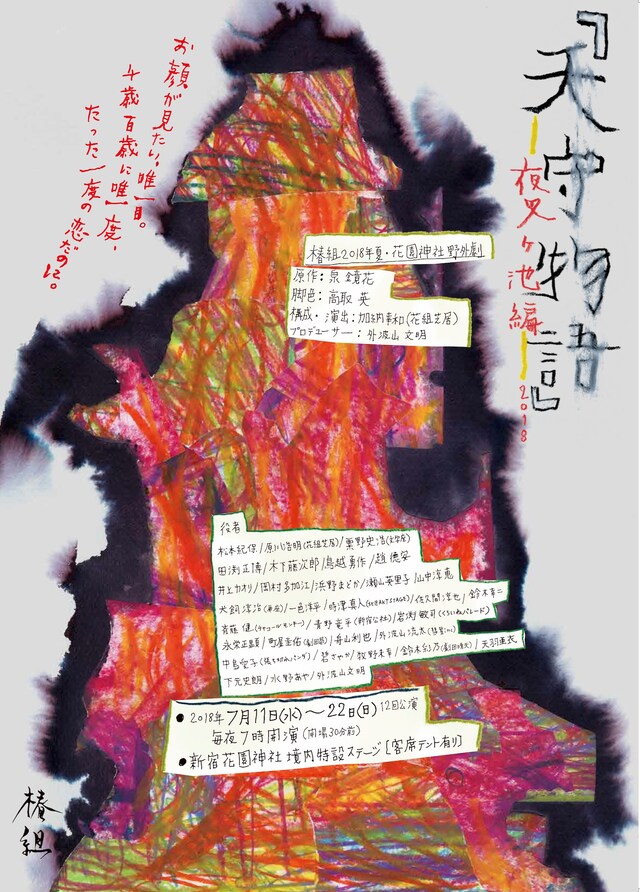 『天守物語』
夜叉ヶ池編
2018
お顔が見たい、唯一目。
千歳百歳に唯一度、
たった一度の恋だのに。
椿組2018年夏・花園神社野外劇
原作：泉鏡花
脚色：高取 英
構成・演出：加納幸和(花組芝居)
プロデューサー：外波山文明
役者
松本紀保/原川浩明(花組芝居)/粟野史浩(文学座)
田渕正博/木下藤次郎/鳥越勇作/趙徳安
井上カオリ/岡村多加江/浜野まどか/瀬山英里子/山中淳恵
犬飼淳治(扉座)/一色洋平/時津真人/佐久間淳也/鈴木幸二
斉藤健/青野竜平(新宿公社)/岩渕敏司(くろいぬパレード)
永栄正顕/町屋圭祐/舟山利也/外波山流太
中島愛子/碧さやか/牧野未幸/鈴木彩乃/天羽亜衣
下元史朗/水野あや/外波山文明
●2018年7月11日(水)～22日(日)12回公演
毎夜7時開演(開場30分前)
●新宿花園神社境内特設ステージ[客席テント有り]
椿組